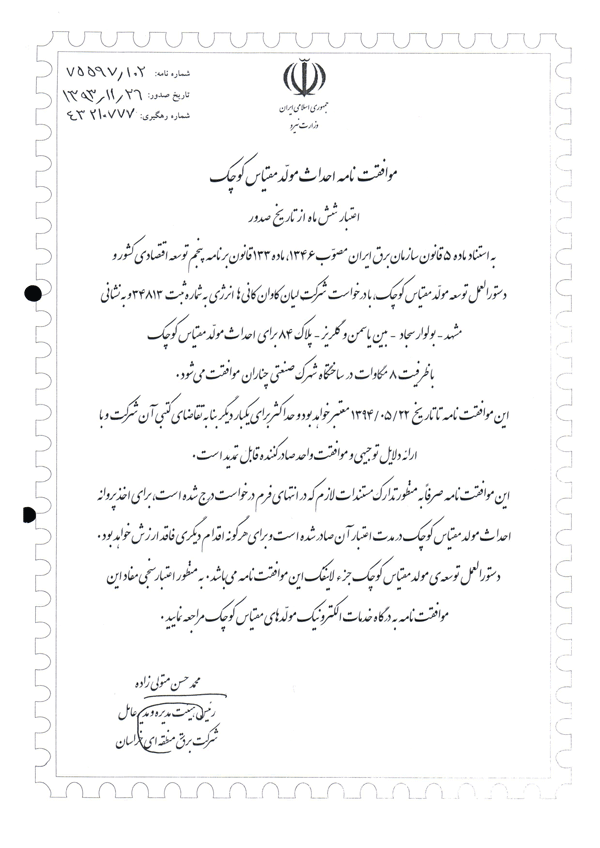 شماره نامه: ۷۵۵۹۷/۱۰۲
تاریخ صدور: ۱۳۹۳/۱۱/۲۶
شماره رهگیری: ۴۳۲۱۰۷۷۷
جمهوری اسلامی ایران
وزارت نیرو
موافقت نامه احداث مولّد مقیاس کوچک
اعتبار شش ماه از تاریخ صدور
به استناد ماده ۵ قانون سازمان برق ایران مصوّب ۱۳۴۶، ماده ۱۳۳ قانون برنامه پنجم توسعه اقتصادی کشور و
دستورالعمل توسعه مولّد مقیاس کوچک، با درخواست شرکت لیان کاوان کانی ها انرژی به شماره ثبت ۳۴۸۱۳ و به نشانی
مشهد - بولوار سجاد - بین یاسمن و گلریز - پلاک ۸۴ برای احداث مولّد مقیاس کوچک
با ظرفیت ۸ مگاوات در ساختگاه شهرک صنعتی چناران موافقت می شود.
این موافقت نامه تا تاریخ ۱۳۹۴/۰۵/۲۲ معتبر خواهد بود و حداکثر برای یکبار دیگر بنا به تقاضای کتبی آن شرکت و با
ارائه دلایل توجیهی و موافقت واحد صادر کننده قابل تمدید است.
این موافقت نامه صرفاً به منظور تدارک مستندات لازم که در انتهای فرم درخواست درج شده است، برای اخذ پروانه
احداث مولد مقیاس کوچک در مدت اعتبار آن صادر شده است و برای هرگونه اقدام دیگری فاقد ارزش خواهد بود.
دستورالعمل توسعه ی مولد مقیاس کوچک جزء لاینفک این موافقت نامه می باشد. به منظور اعتبار سنجی مفاد این
موافقت نامه به درگاه خدمات الکترونیک مولّدهای مقیاس کوچک مراجعه نمایید.
محمد حسن متولی زاده
رئیس هیئت مدیره و مدیر عامل
شرکت برق منطقه ای خراسان